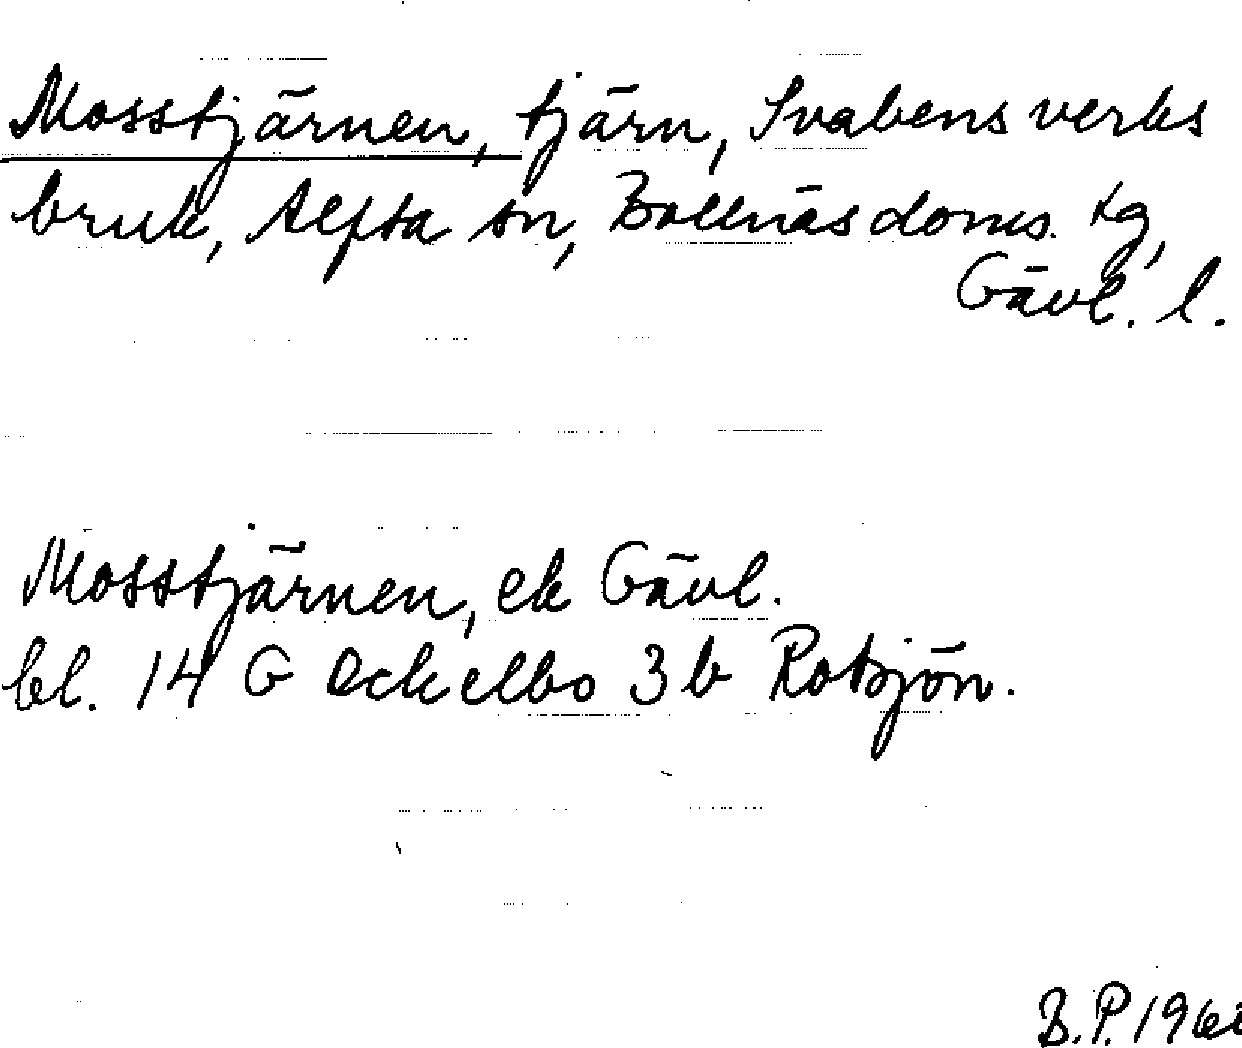 Mosstjärnen, tjärn, Svabensverks
bruk, Alfta sn, Bollnäs doms. tg,
Gävl. l.
Mosstjärnen, ek Gävl.
bl. 14 G Ockelbo 3 b Rotsjön.
B.P.